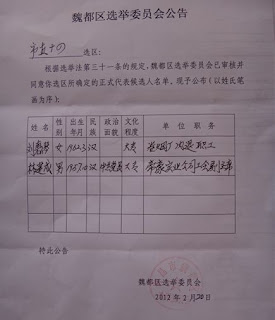 魏都区选举委员会公告
市直十四 选区:
根据选举法第三十一条的规定,魏都区选举委员会已审核并
同意你选区所确定的正式代表候选人名单,现予公布(以姓氏笔
画为序):
姓名 性别 出生年月 民族 政治面貌 文化程度 单位 职务
女 1962.3 汉 大专 职工
男 1957.10 汉 中共党员 大专 实业公司工会副主席
特此公告
魏都区选举委员会
2012年2月20日